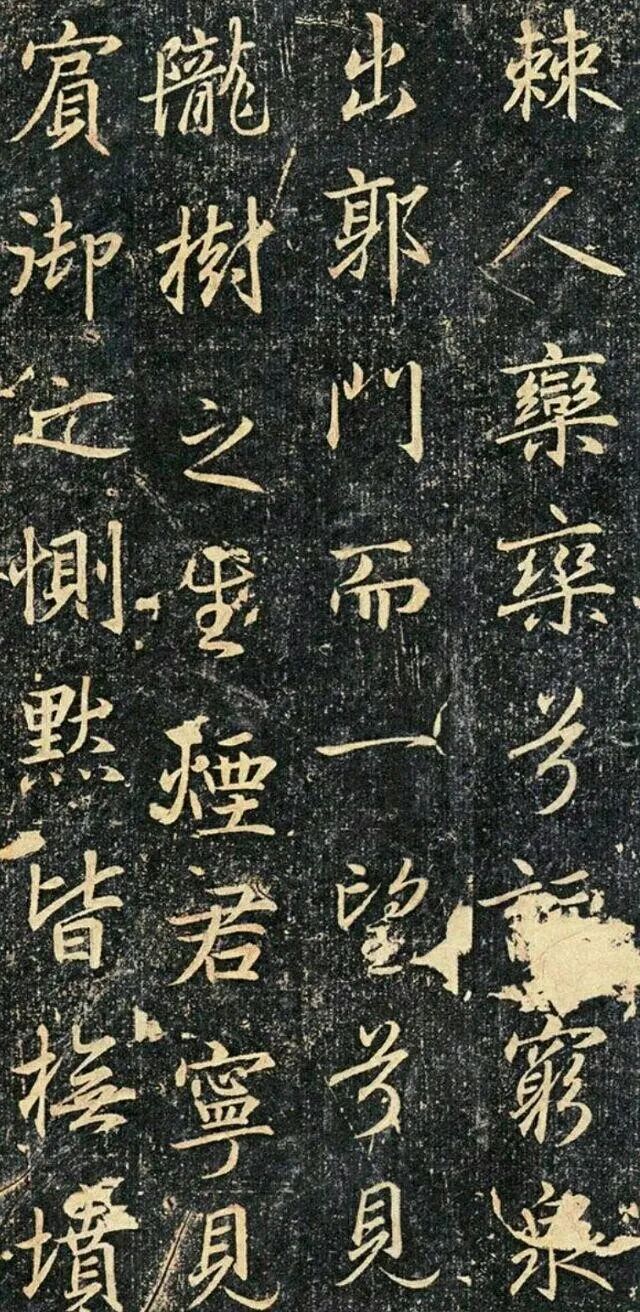 棘人欒欒兮窮泉
出郭門而一望兮見
隴樹之生煙君寧見
賓御近惻默皆撫墳